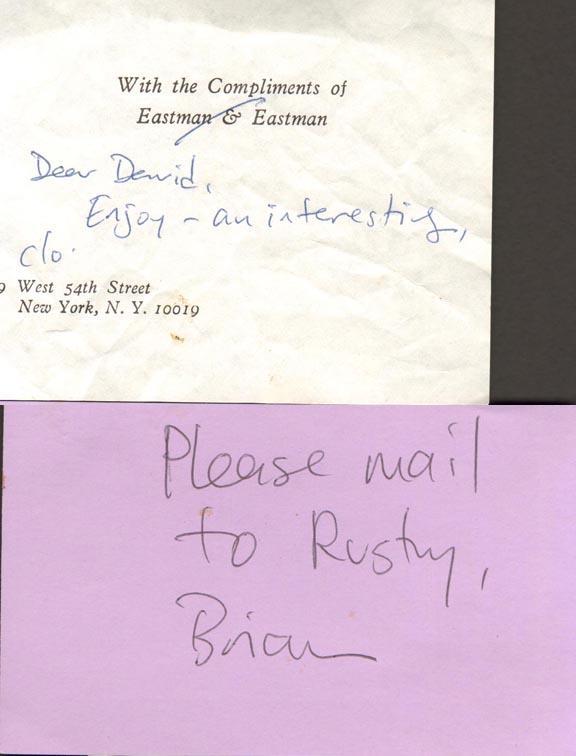 With the Compliments of
Eastman & Eastman
Dear David,
Enjoy – an interesting,
clo.
9 West 54th Street
New York, N. Y. 10019
Please mail
to Rusty,
Brian